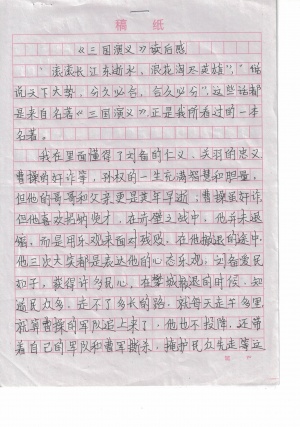 稿 纸
《三国演义》读后感
"滚滚长江东逝水，浪花淘尽英雄"，"话
说天下大势，分久必合，合久必分"，这些话都
是来自名著《三国演义》，正是我所看过的一本
名著。
我在里面懂得了刘备的仁义、关羽的忠义
曹操的奸诈等，孙权的一生充满智慧和胆量，
但他的哥哥和父亲更是英年早逝，曹操虽奸诈
但他喜欢招纳贤才，在赤壁之战中，他并未退
缩，而是用乐观来面对残败，在他撤退的途中，
他三次大笑都是表达他的心态乐观，刘备爱民
如子，获得许多民心，在撤退的时候，知
道民众多，走不了多长的路，就每天走十多里
就算曹操的军队追上来了，他也不投降，还带
着自己的军队和曹军厮杀，掩护民众先走等这